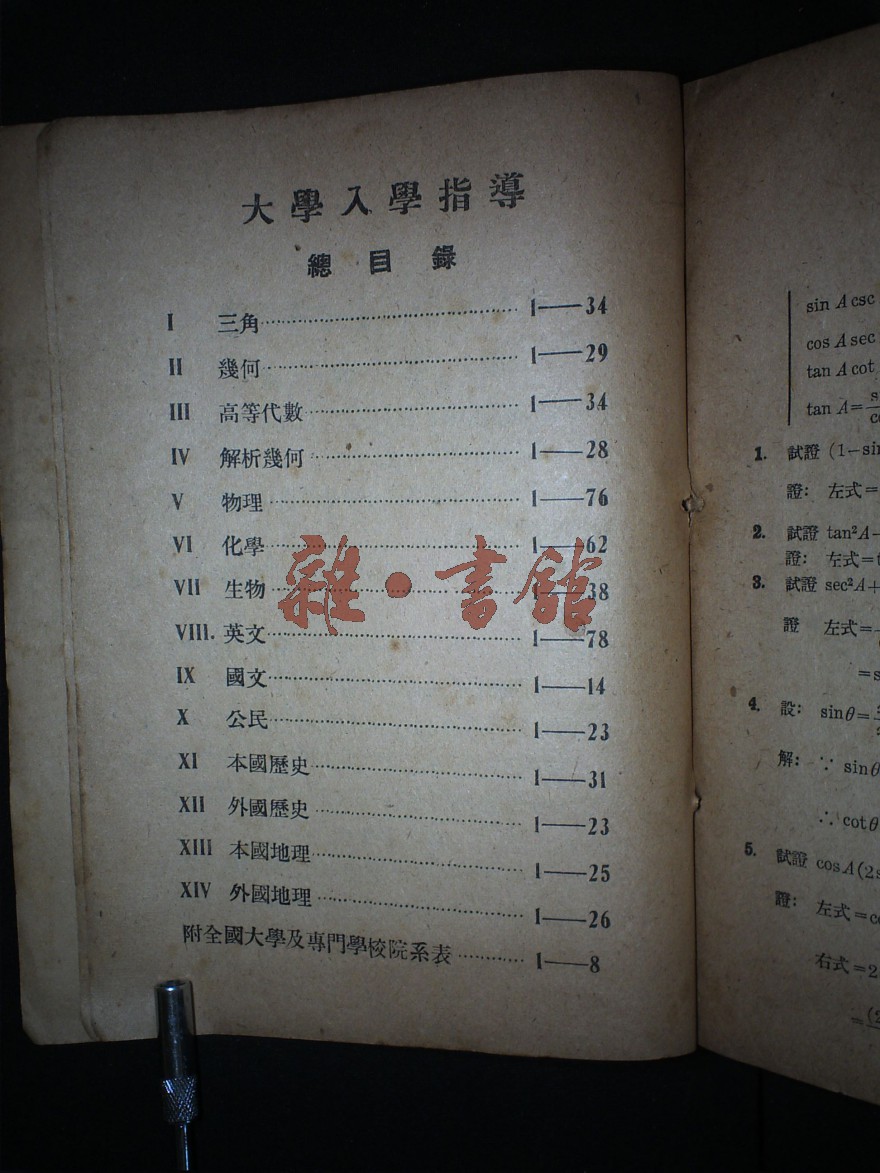 大學入學指導
總目錄
I 三角 1——34
II 幾何 1——29
III 高等代數 1——34
IV 解析幾何 1——28
V 物理 1——76
VI 化學 1——62
VII 生物 1——38
VIII. 英文 1——78
IX 國文 1——14
X 公民 1——23
XI 本國歷史 1——31
XII 外國歷史 1——23
XIII 本國地理 1——25
XIV 外國地理 1——26
附全國大學及專門學校院系表 1——8
雜·書館
sin A csc
cos A sec
tan A cot
tan A=
1. 試證 (1−sin
證: 左式=
2. 試證 tan²A−
證: 左式=
3. 試證 sec²A+
證 左式=
=s
4. 設: sinθ=
解: ∵ sinθ
∴ cotθ
5. 試證 cosA(2s
證: 左式=c
右式=2
=